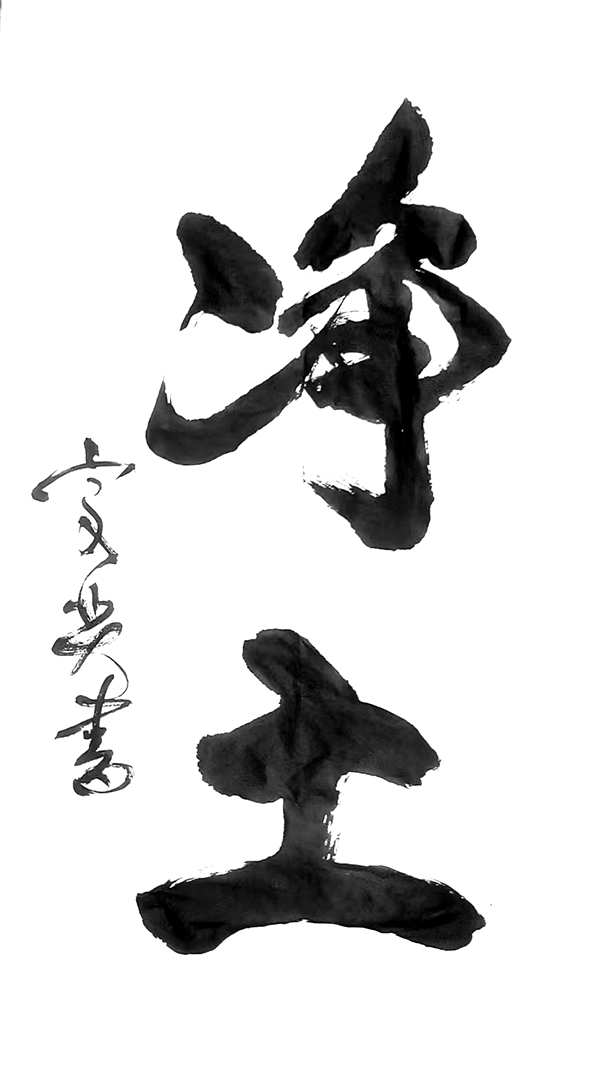 净土
書